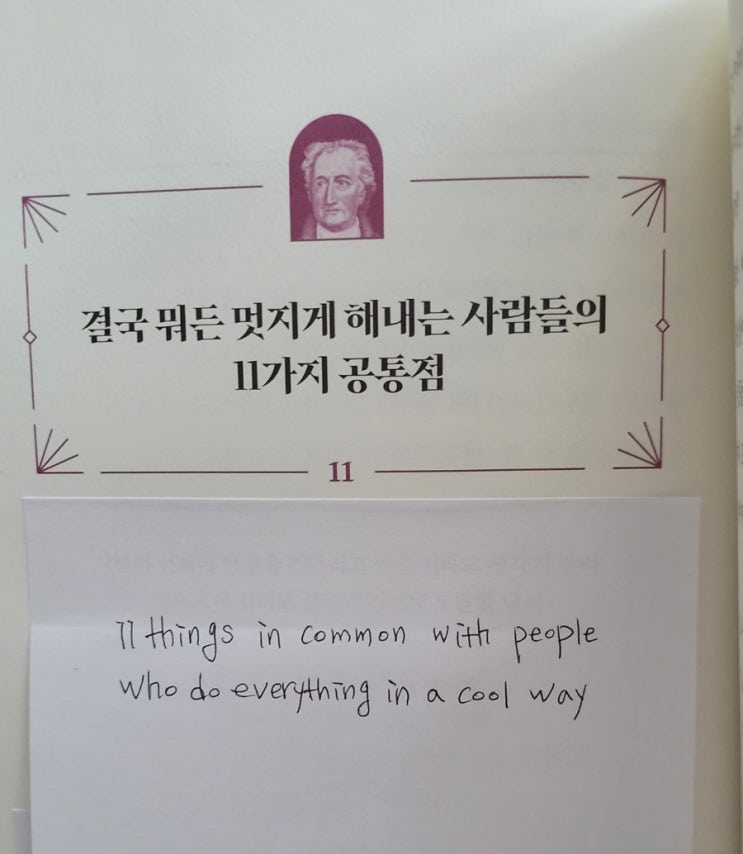 결국 뭐든 멋지게 해내는 사람들의
11가지 공통점
11
11 things in common with people
who do everything in a cool way